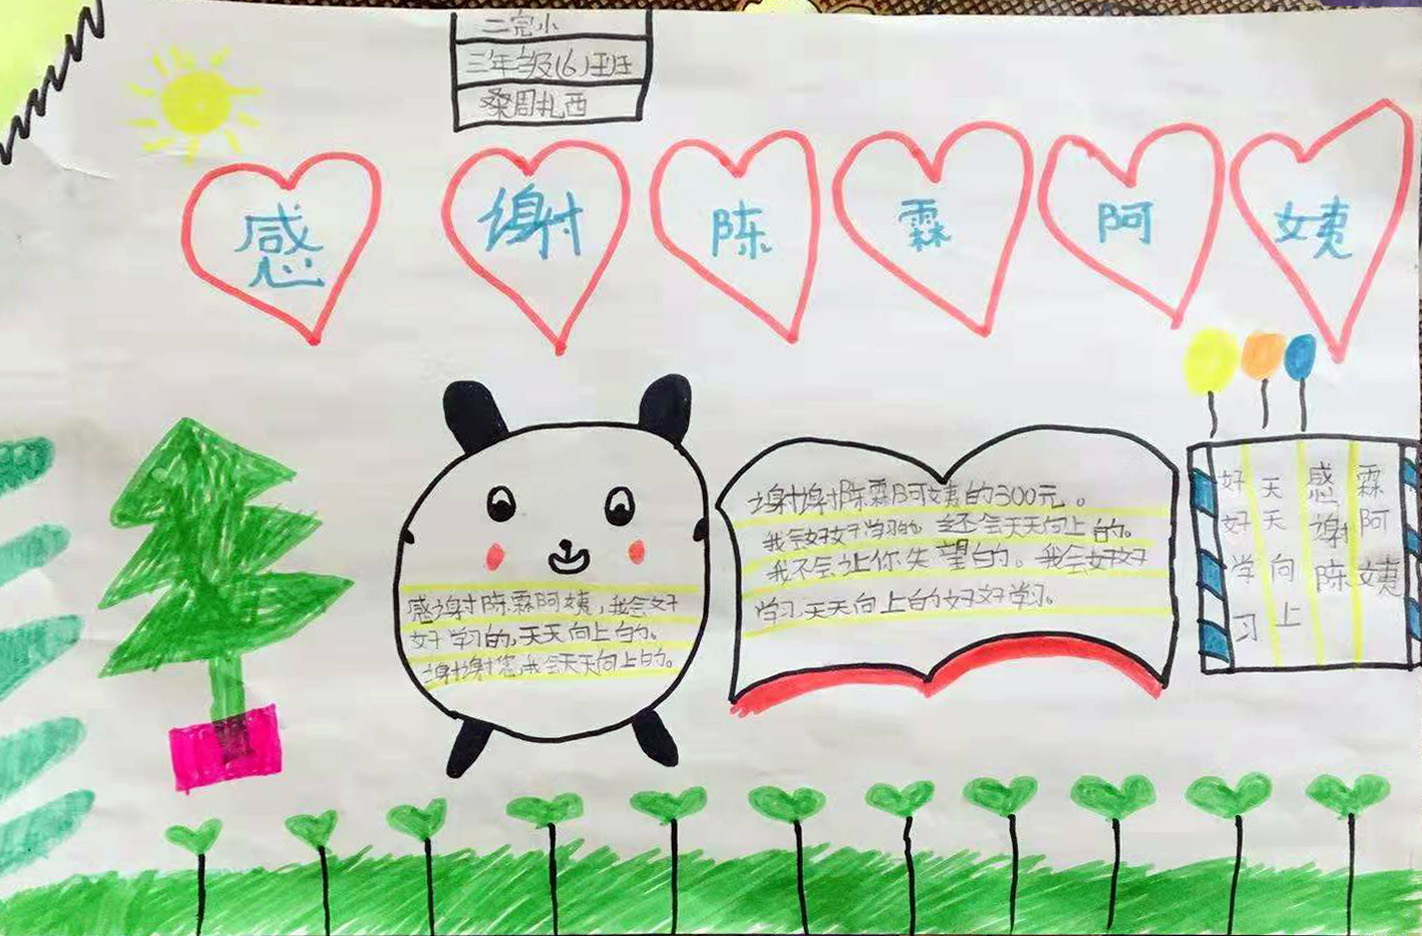 二完小
三年级(6)班
桑周扎西
感谢陈霖阿姨
感谢陈霖阿姨,我会好
好学习的,天天向上的。
谢谢您,我会天天向上的。
谢谢陈霖阿姨的300元。
我会好好学习的 还会天天向上的。
我不会让你失望的。我会好好
学习.天天向上的好好学习。
好好学习
天天向上
感谢陈
霖阿姨